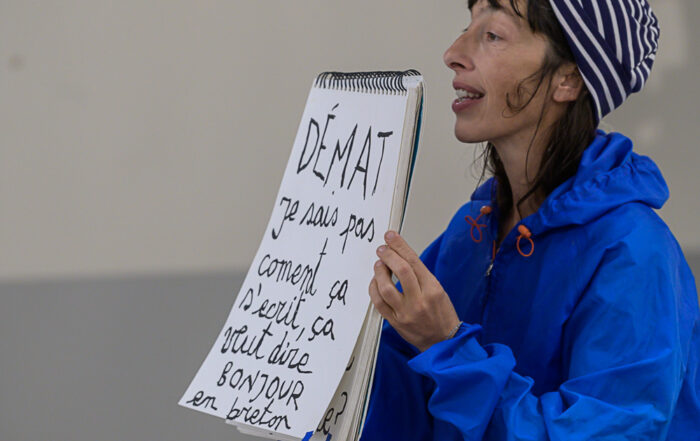 DÉMAT
je sais pas
coment ça
s'ecrit, ça
veut dire
BONJOUR
en breton
e?